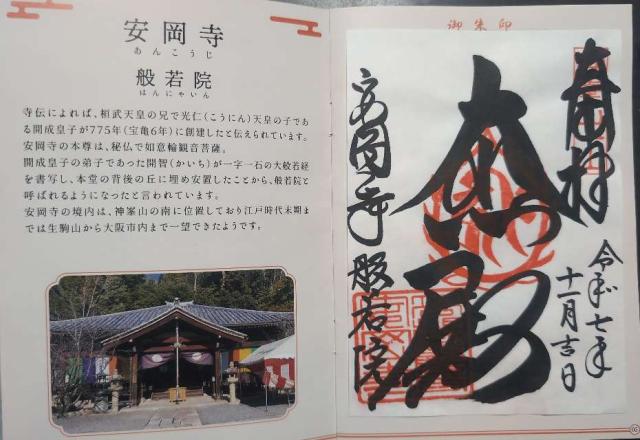 安岡寺
あんこうじ
般若院
はんにゃいん
寺伝によれば、桓武天皇の兄で光仁(こうにん)天皇の子であ
る開成皇子が775年(宝亀6年)に創建したと伝えられています。
安岡寺の本尊は、秘仏で如意輪観音菩薩。
開成皇子の弟子であった開智(かいち)が一字一石の大般若経
を書写し、本堂の背後の丘に埋め安置したことから、般若院と
呼ばれるようになったと言われています。
安岡寺の境内は、神峯山の南に位置しており江戸時代末期ま
では生駒山から大阪市内まで一望できたようです。
御朱印
奉拝
令和七年
十一月吉日
大悲殿
安岡寺般若院